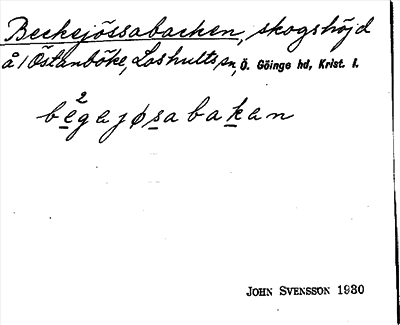 Beckejössabacken, skogshöjd
å 1 Östanböke, Loshults sn, Ö. Göinge hd, Krist. l.
2
begajøsabakan
JOHN SVENSSON 1930